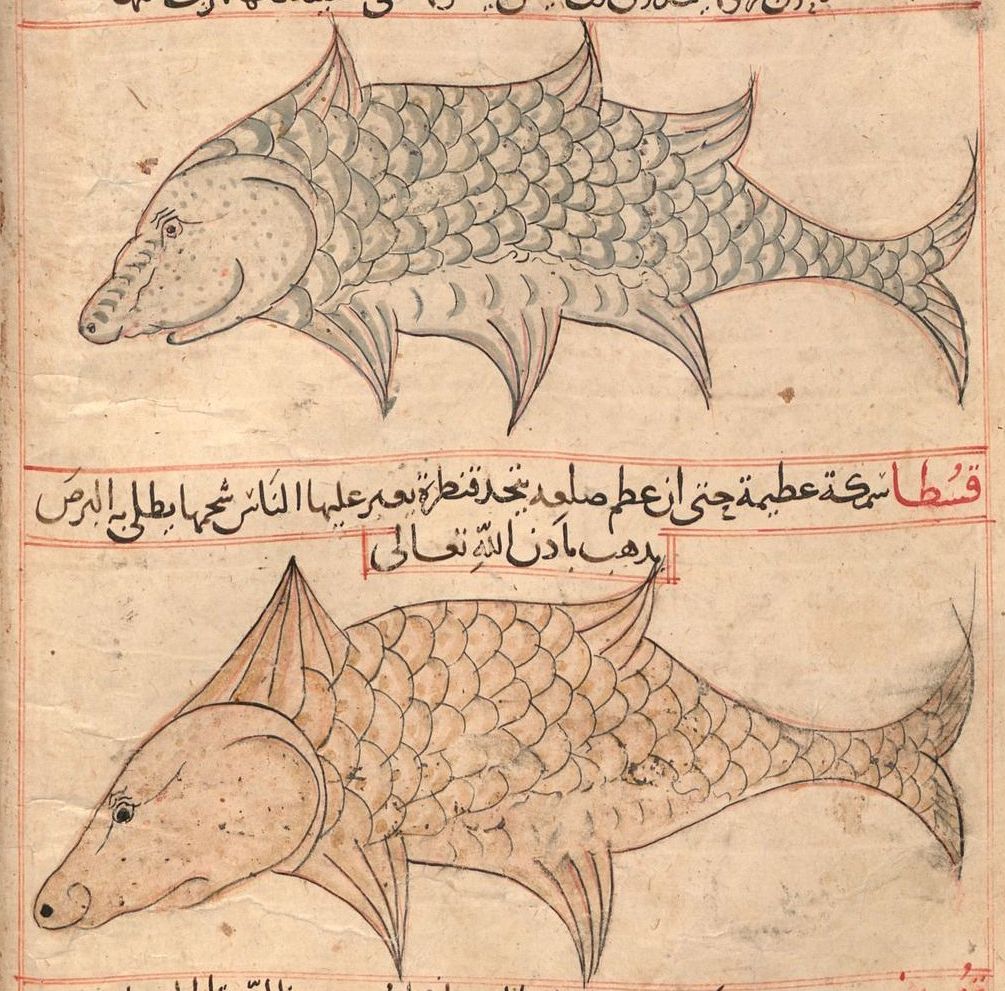 قسُطا سمكة عظيمة حتى ان عظم ضلعه يتخذ قنطرة يعبر عليها الناس شحمها يطلى به البرص
يذهب باذن الله تعالى